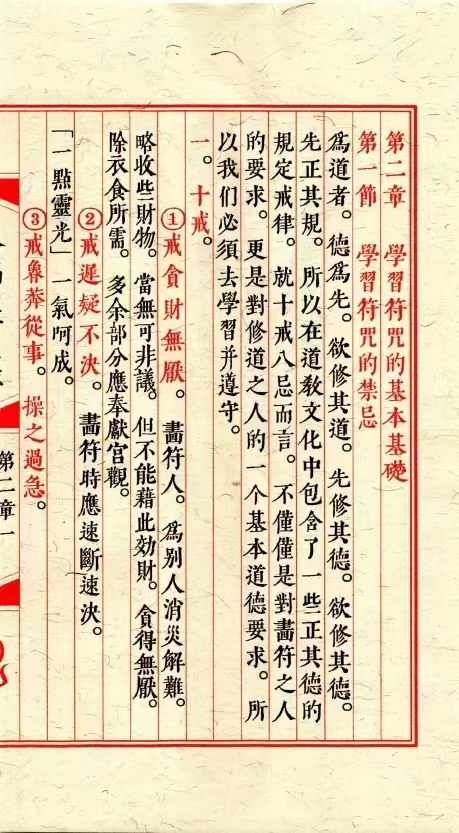 第二章　學習符咒的基本基礎
第一節　學習符咒的禁忌
爲道者。德爲先。欲修其道。先修其德。欲修其德。
先正其規。所以在道教文化中包含了一些正其德的
規定戒律。就十戒八忌而言。不僅僅是對畫符之人
的要求。更是對修道之人的一个基本道德要求。所
以我们必须去學習并遵守。
一。十戒。
①戒貪財無厭。畵符人。爲别人消災解難。
略收些財物。當無可非議。但不能藉此効財。貪得無厭。
除衣食所需。多余部分應奉獻宫觀。
②戒遲疑不決。畵符時應速斷速決。
「一點靈光」一氣呵成。
③戒魯莽從事。操之過急。
第二章一